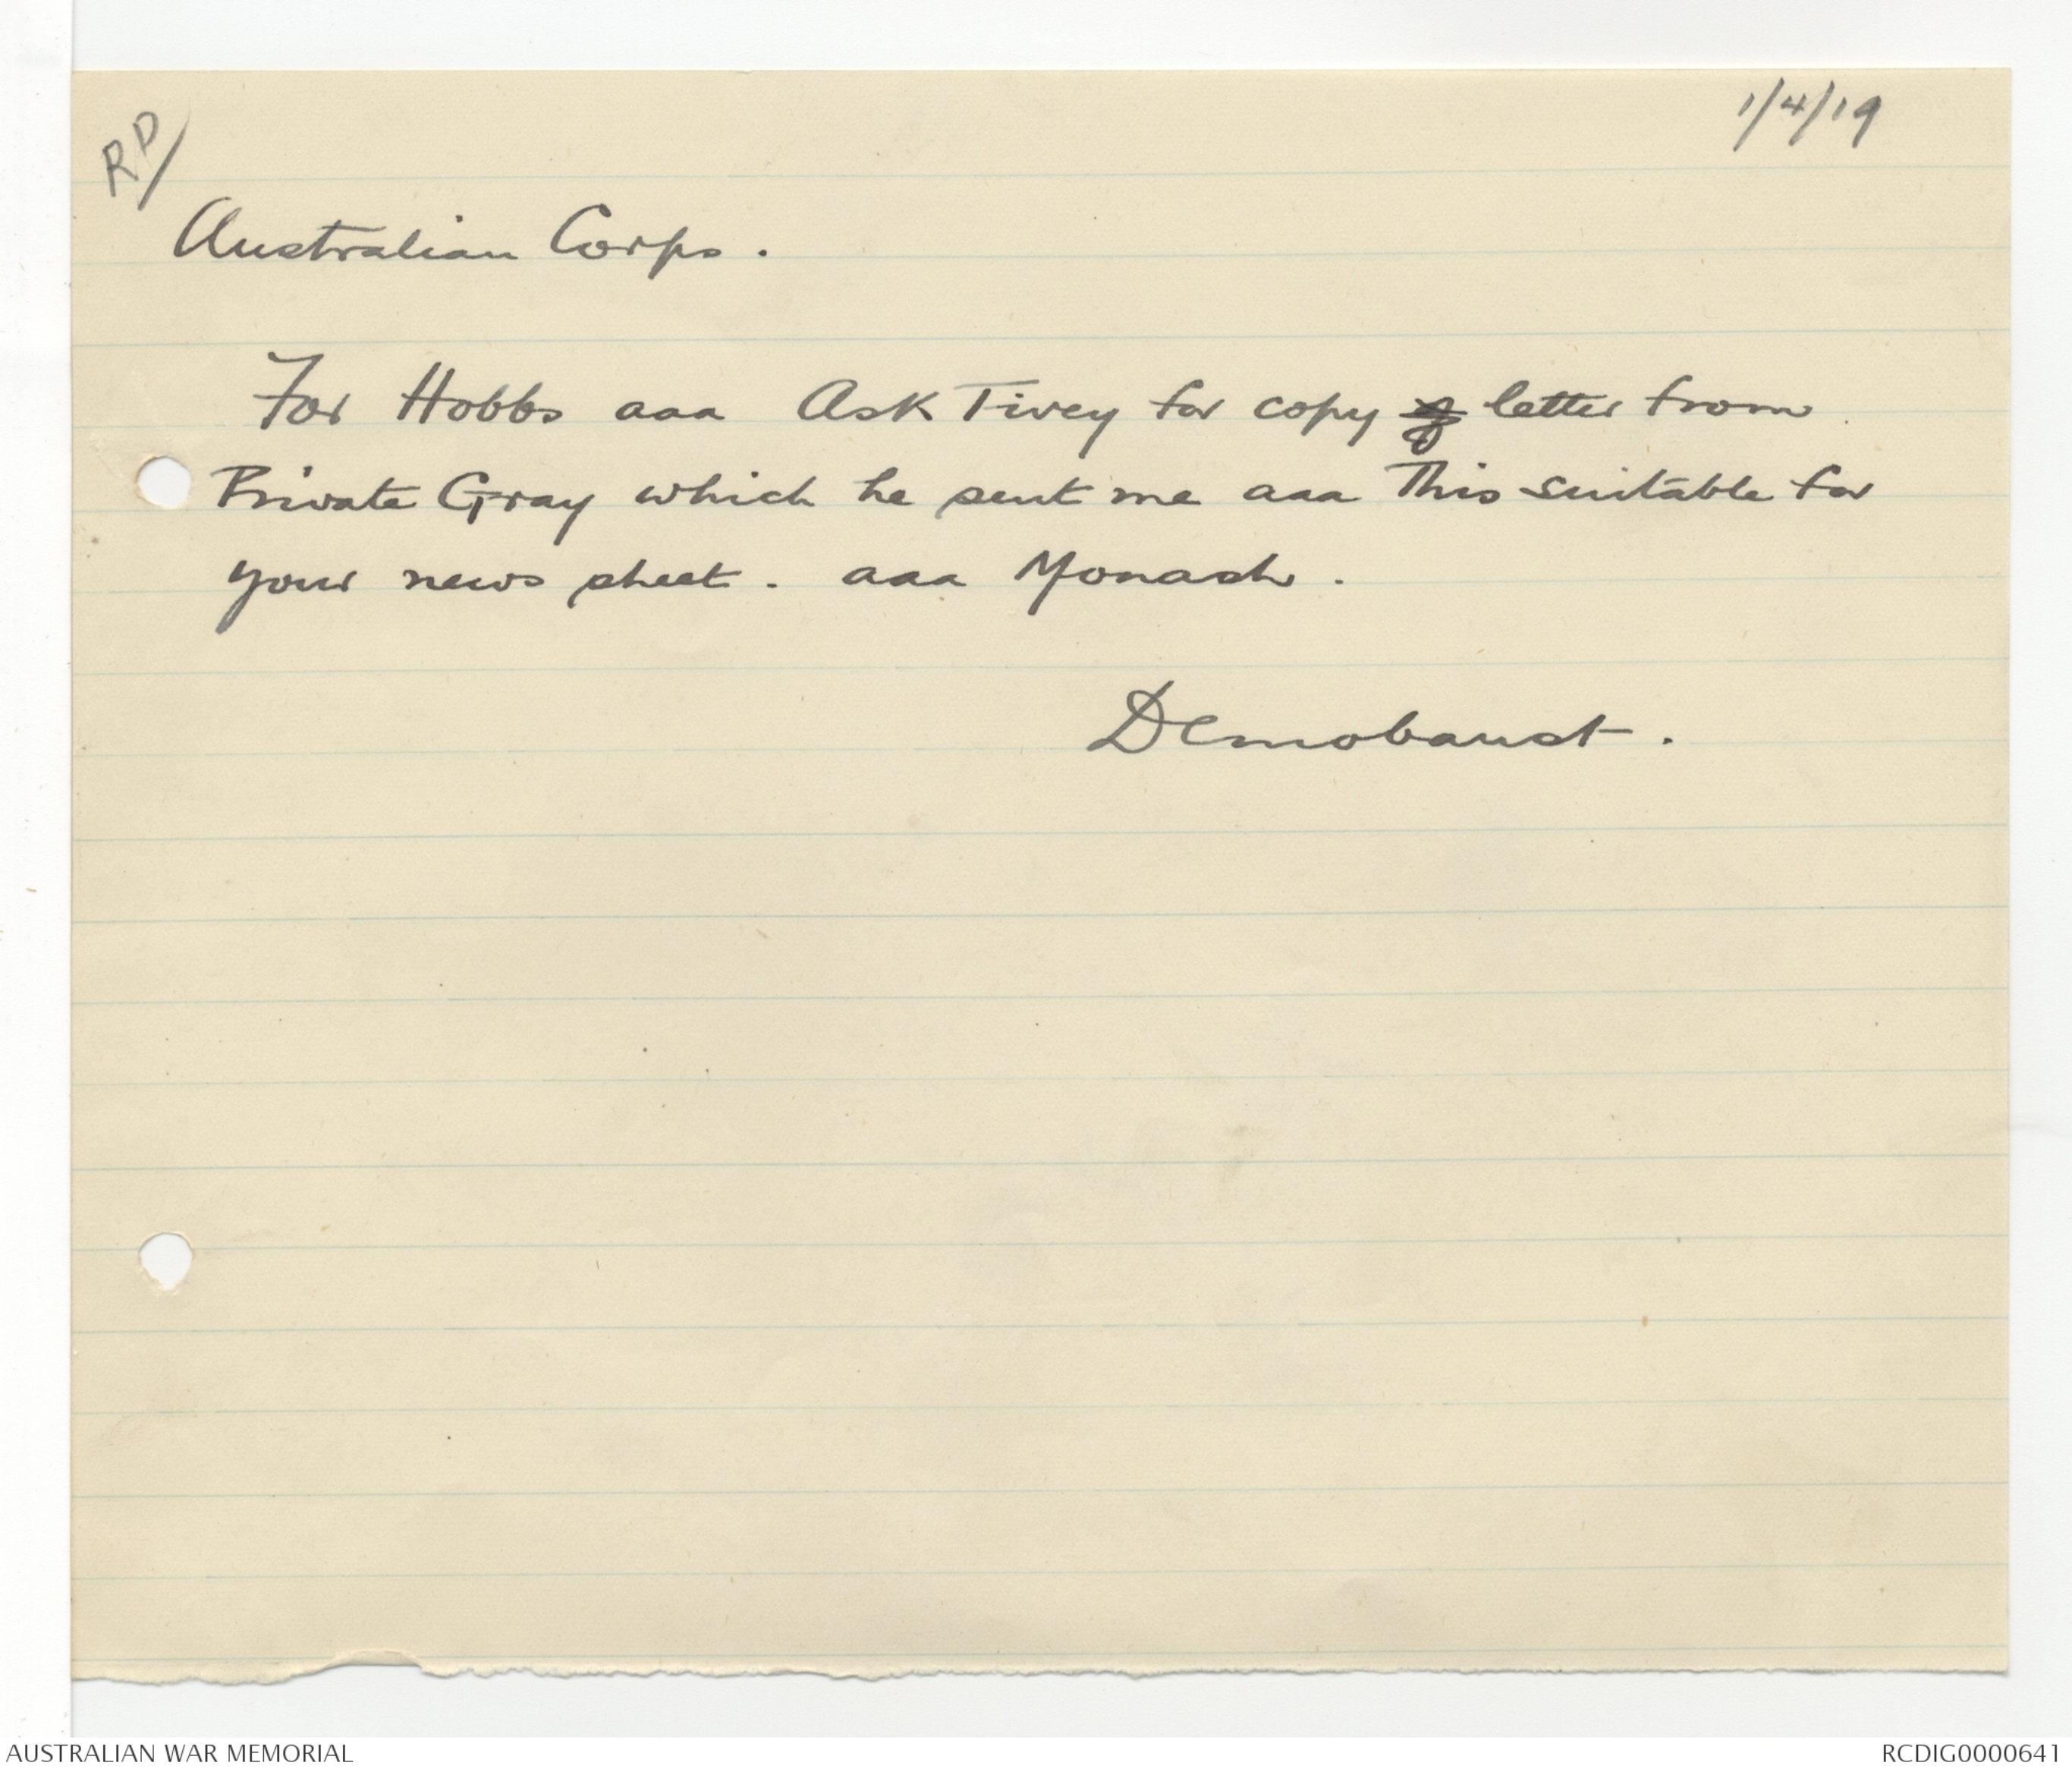 RD/
1/4/19
Australian Corps.
For Hobbs aaa Ask Tivey for copy letter from
Private Gray which he sent me aaa This suitable for
your news sheet. aaa Monash.
Demobaust.
AUSTRALIAN WAR MEMORIAL
RCDIG0000641